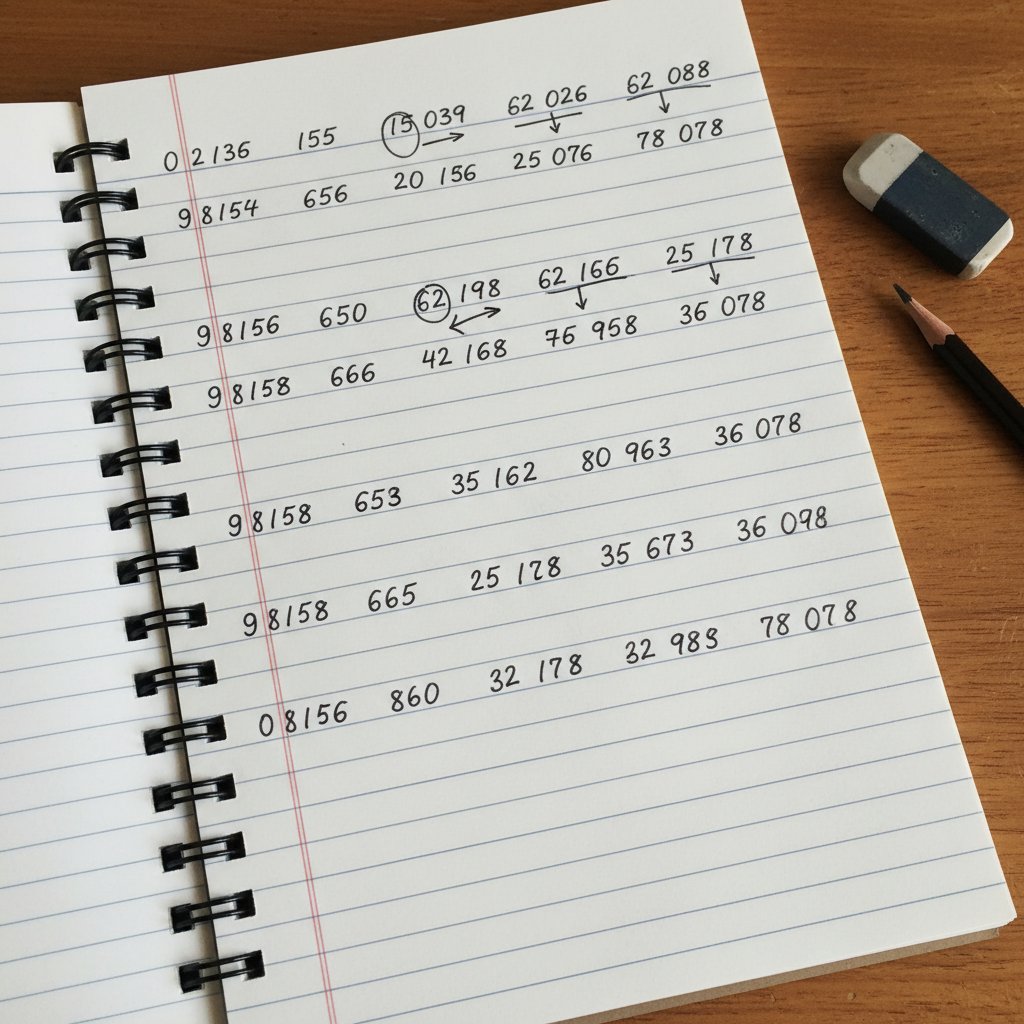 0 2136 155 15 039 62 026 62 088
9 8154 656 20 156 25 076 78 078
9 8156 650 62 198 62 166 25 178
9 8158 666 42 168 76 958 36 078
9 8158 653 35 162 80 963 36 078
9 8158 665 25 178 35 673 36 098
0 8156 860 32 178 32 983 78 078